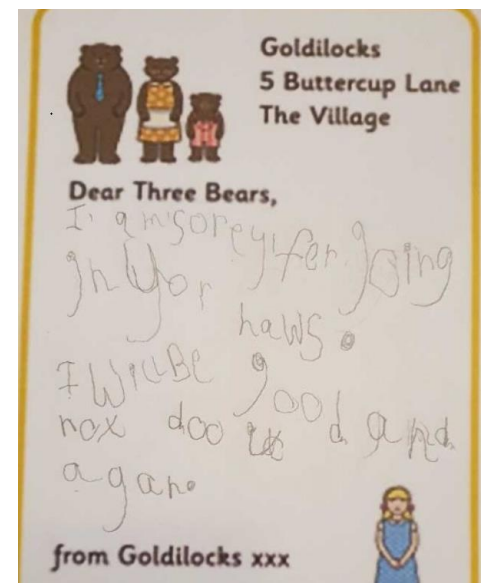 Goldilocks
5 Buttercup Lane
The Village
Dear Three Bears,
I am sorey fer going
in yor
haws.
I Will Be good and
not doo it
agan.
from Goldilocks xxx